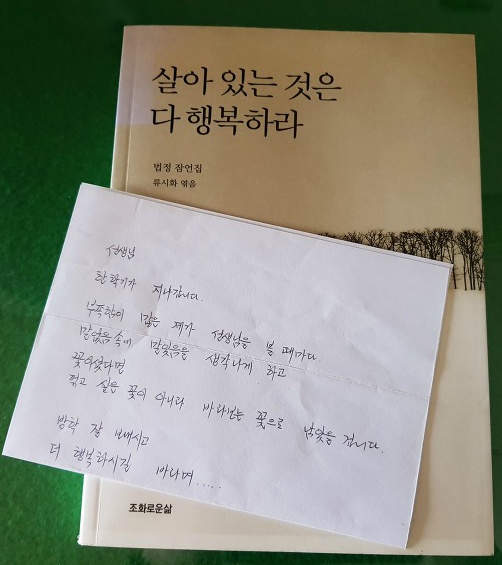 살아 있는 것은
다 행복하라
법정 잠언집
류시화 엮음
선생님
한 학기가 지나갑니다.
부족함이 많은 제가 선생님을 볼 때마다
많았음을 생각나게 하고
꽃이셨다면
꺾고 싶은 꽃이 아니라 바라보는 꽃으로 남았을 겁니다.
방학 잘 보내시고
더 행복하시길 바라며.....
조화로운삶